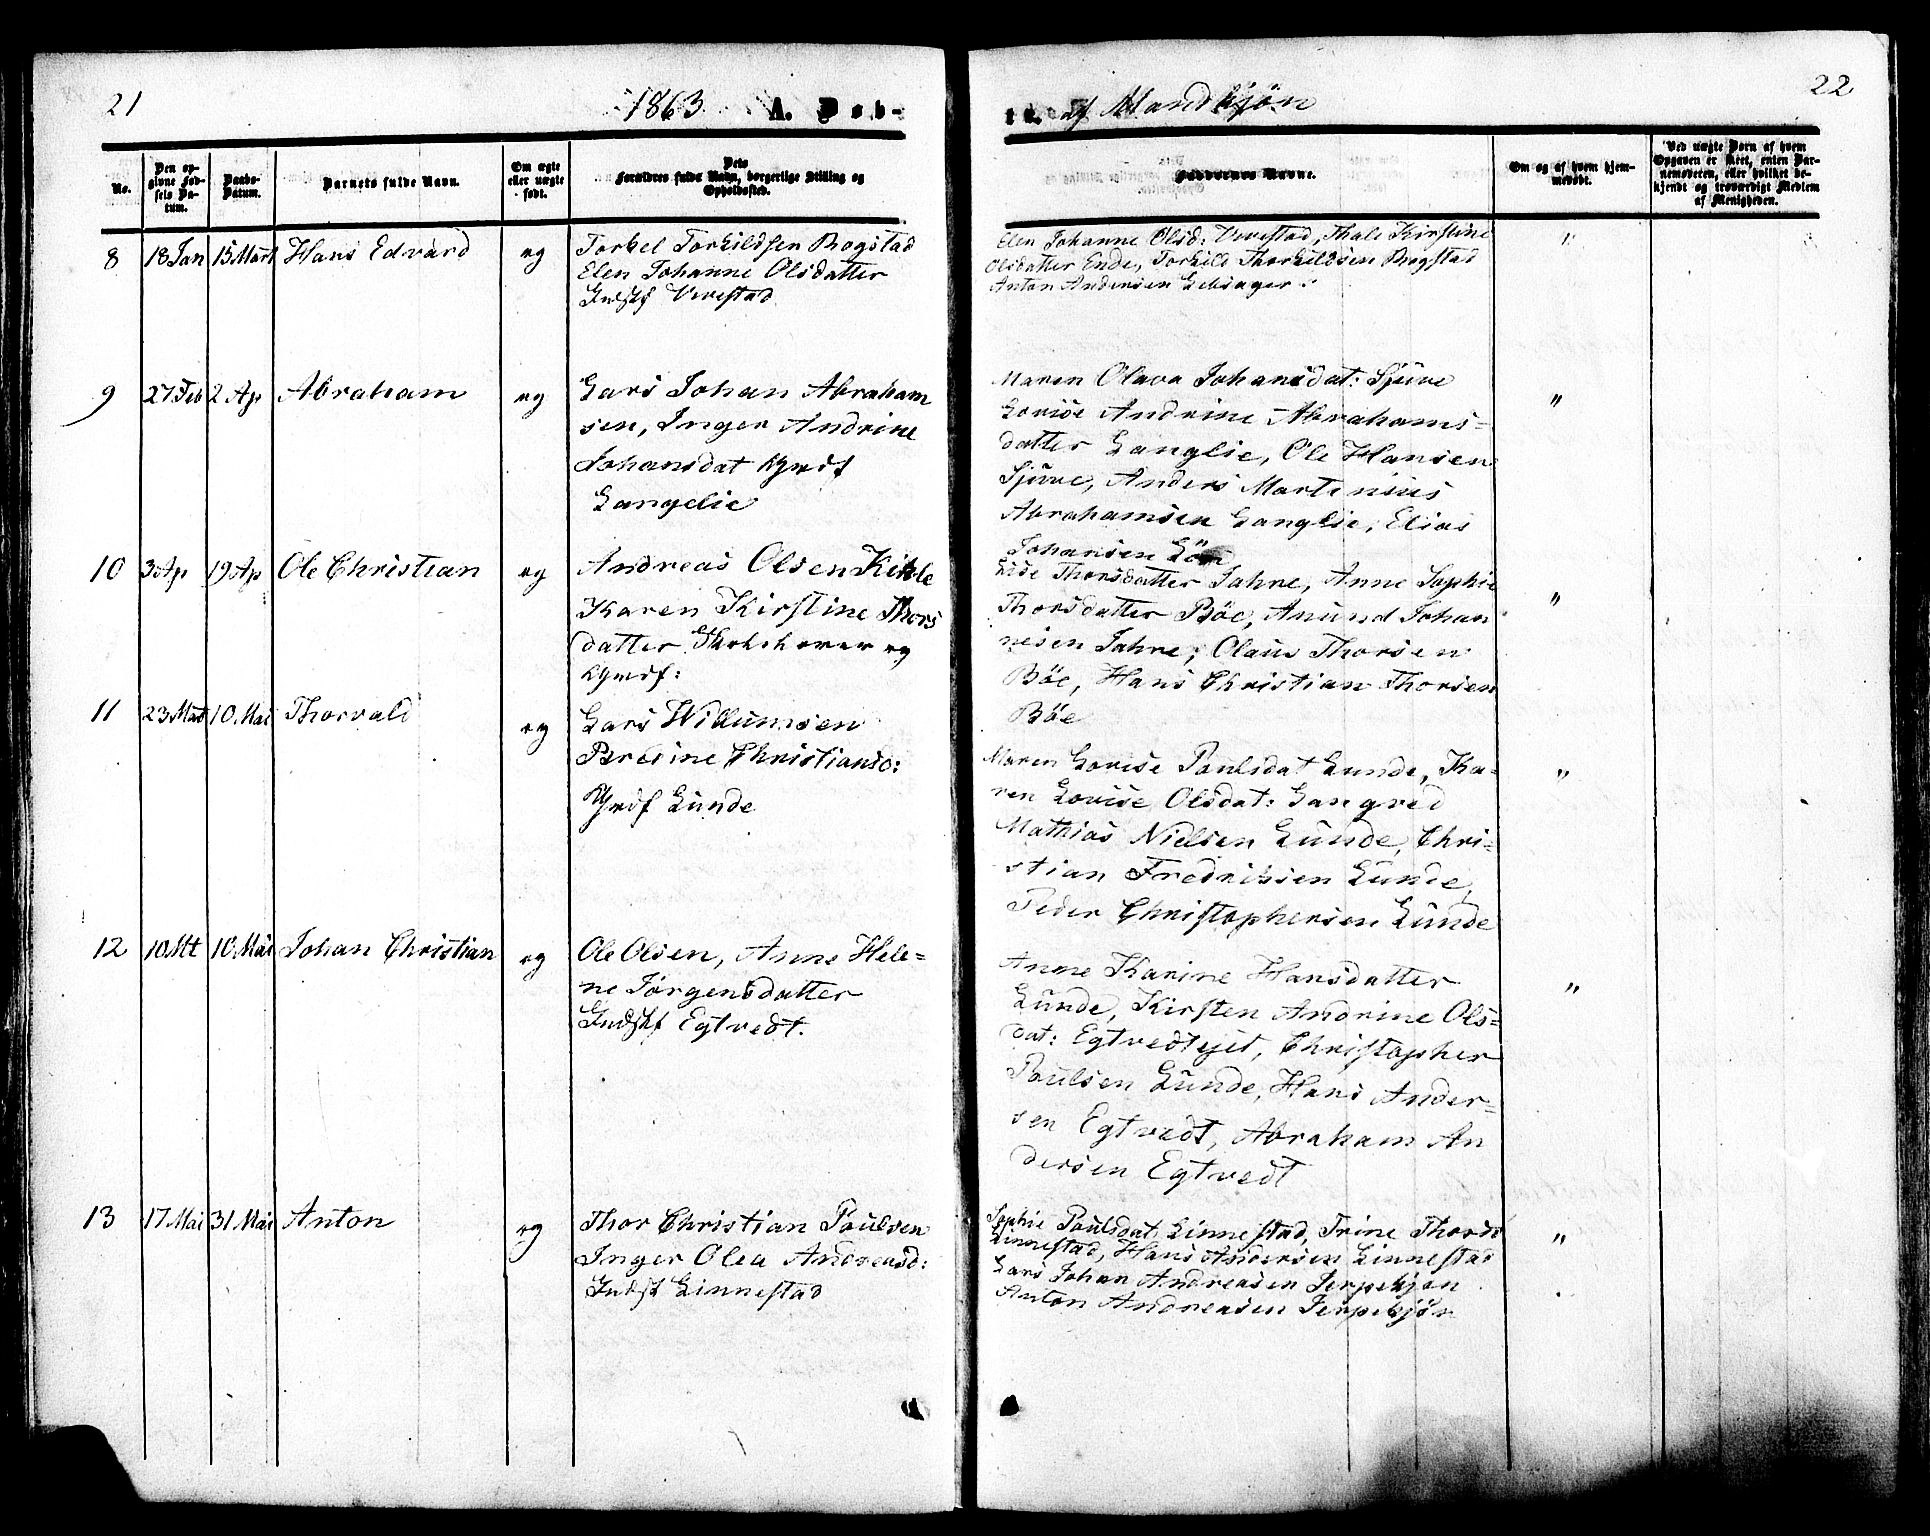 21
1863 A. Døb-
te af Mandkjøn
22
No.
Den op-
givne Fød-
sels Da-
tum.
Daabs-
Datum.
Barnets fulde Navn.
Om ægte
eller uægte
født.
Dets
Forældres fulde Navn, borgerlige Stilling og
Opholdssted.
Faddernes Navne.
Om og af hvem hjem-
medøbt.
Ved uægte Børn af hvem
Opgaven er skeet, enten Bar-
nemoderen, eller hvilket be-
kjendt og troværdigt Medlem
af Menigheden.
8 18 Jan 15 Mart Hans Edvard eg
Torkel Torkildsen Rogstad
Elen Johanne Olsdatter
Indst Virestad
Elen Johanne Olsd: Virestad, Thale Kirstine
Olsdatter Ende, Torkild Thorkildsen Rogstad
Anton Andersen
"
9 27 Feb 2 Ap Abraham eg
Lars Johan Abraham
sen, Inger Andrine
Johansdat Hmdf
Langelie
Maren Olava Johansdat: Sjüve
Lovise Andrine Abrahams=
datter Langlie, Ole Hansen
Sjüve, Anders Martinius
Abrahamsen Langlie, Elias
Johansen
"
10 3 Ap 19 Ap Ole Christian eg
Andreas Olsen Kihle
Karen Kirstine Thors
datter Skoleholder og
Hmdf:
Lise Thorsdatter Jahre, Anne Sophie
Thorsdatter Böe, Anund Johan
nesen Jahre, Olaus Thorsen
Böe, Hans Christian Thorsen
Böe
"
11 23 Mart 10 Mai Thorvald eg
Lars Willumsen
Bredine Christiansd:
Hmdf Lunde
Maren Lovise Poulsdat Lunde, Ka-
ren Lovise Olsdat: Langved
Mathias Nielsen Lunde, Chri=
stian Fredriksen Lunde,
Peder Christophersen Lunde
"
12 10 Mt 10 Mai Johan Christian eg
Ole Olsen, Anne Hele=
ne Jørgensdatter
Indst Egtvedt.
Anne Karine Hansdatter
Lunde, Kirsten Andrine Ols=
dat: Egtvedtejet, Christopher
Poulsen Lunde, Hans Ander=
sen Egtvedt, Abraham An
dersen Egtvedt
"
13 17 Mai 31 Mai Anton eg
Thor Christian Poulsen
Inger Olea Andreasd:
Indst Linnestad
Sophie Poulsdat Linnestad, Trine Thorsd
Linnestad, Hans Andersen Linnestad
Lars Johan Andreasen Jerpekjøn
Anton Andreasen Jerpekjøn
"